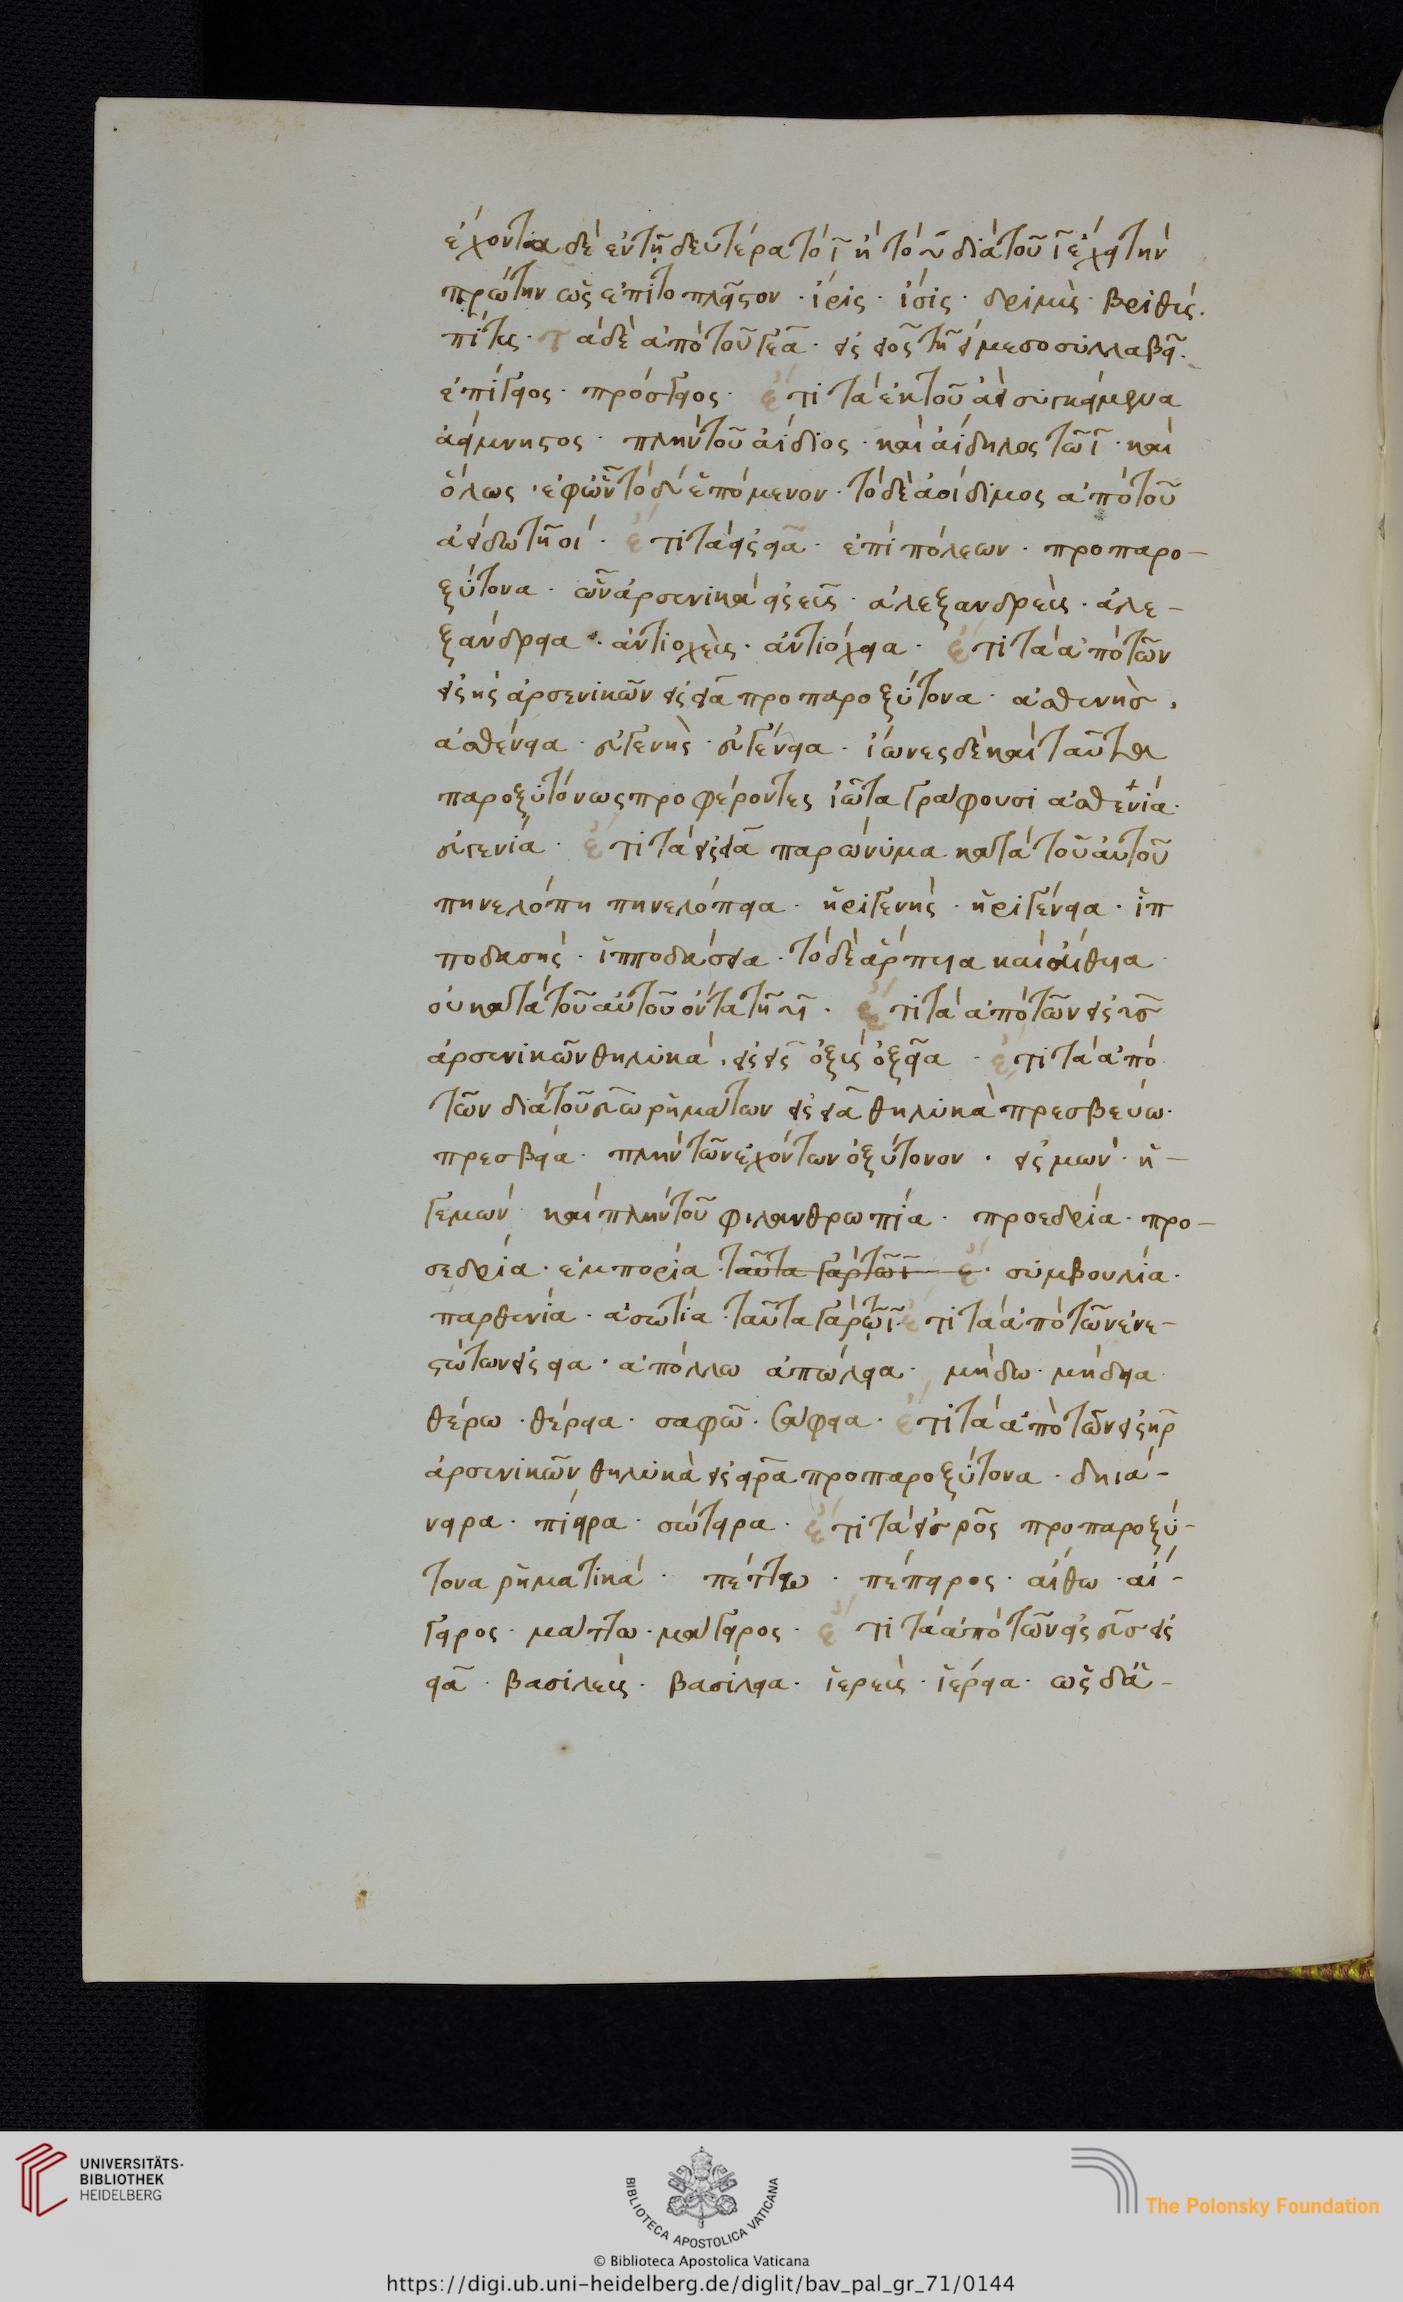 ἔχοντα δὲ ἐν τῆ δευτέρα τὸ ϊ ἢ τὸ υ διὰ τοῦ ϊ ἔχει τὴν
πρώτην ὡς ἐπὶ τὸ πλεῖστον · ἶρις · ἶσις · δριμὺς · βριθύς ·
πίτυς · τὰ δὲ ἀπὸ τοῦ γεα · εἰς ειος τῆ ει μεσοσυλλαβεῖ ·
ἐπίγειος · πρόσγειος · ἔτι τὰ ἐκ τοῦ ἀεὶ συγκείμενα
ἀείμνηστος · πλὴν τοῦ ἀΐδιος · καὶ ἀΐδηλος τῶ ϊ · καὶ
ὅλως · ἐφ' ὧν τὸ δ' ἑπόμενον · τὸ δὲ ἀοίδιμος ἀπὸ τοῦ
ἀείδω τῆ οι · ἔτι τὰ εἰς εια · ἐπὶ πόλεων · προπαρο-
ξύτονα · ὧν ἀρσενικὰ εἰς εὺς · ἀλεξανδρεὺς · ἀλε-
ξάνδρεια · ἀντιοχεὺς · ἀντιόχεια · ἔτι τὰ ἀπὸ τῶν
εἰς ης ἀρσενικῶν εἰς εια προπαροξύτονα · ἀσθενὴς ·
ἀσθένεια · εὐγενὴς · εὐγένεια · ἴωνες δὲ καὶ ταῦτα
παροξυτόνως προφέροντες ἰῶτα γράφουσι ἀσθενία ·
εὐγενία · ἔτι τὰ εἰς εια παρώνυμα κατὰ τοῦ αὐτοῦ
πηνελόπη πηνελόπεια · ἠριγενὴς · ἠριγένεια · ἱπ
ποδασὴς · ἱπποδάσεια · τὸ δὲ ἅρπυια καὶ αἴθυια ·
οὐ κατὰ τοῦ αὐτοῦ ὄντα τῆ υι · ἔτι τὰ ἀπὸ τῶν εἰς υς
ἀρσενικῶν θηλυκά · ὀξὺς ὀξεῖα · ἔτι τὰ ἀπὸ
τῶν διὰ τοῦ ευω ῥημάτων εἰς εια θηλυκὰ πρεσβεύω ·
πρεσβεία · πλὴν τῶν ἐχόντων ὀξύτονον · εἰς μων · ἡ-
γεμών · καὶ πλὴν τοῦ φιλανθρωπία · προεδρία · προ-
σεδρία · ἐμπορία · ταῦτα γὰρ τῶ ι ἔ · συμβουλία ·
παρθενία · ἀσωτία · ταῦτα γὰρ τῶ ϊ · ἔτι τὰ ἀπὸ τῶν ἐνε-
στώτων εἰς εια · ἀπόλλω ἀπώλεια · μήδω · μήδεια
θέρω · θέρεια · σαφῶ · σάφεια · ἔτι τὰ ἀπὸ τῶν εἰς ηρ
ἀρσενικῶν θηλυκὰ εἰς ειρα προπαροξύτονα · δηιά-
νειρα · πίειρα · σώτειρα · ἔτι τὰ εἰς ρος προπαροξύ-
τονα ῥηματικά · πέπτω · πέπειρος · αἴθω · αἴ-
γειρος · μάττω · μάγειρος · ἔτι τὰ ἀπὸ τῶν εἰς ευς εἰς
εια · βασιλεὺς · βασίλεια · ἱερεὺς · ἱέρεια · ὡς δά-
UNIVERSITÄTS-
BIBLIOTHEK
HEIDELBERG
BIBLIOTECA APOSTOLICA VATICANA
The Polonsky Foundation
© Biblioteca Apostolica Vaticana
https://digi.ub.uni-heidelberg.de/diglit/bav_pal_gr_71/0144